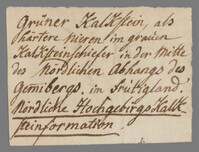 Grüner Kalkstein, als
härtere Nieren im grauen
Kalksteinschiefer in der Mitte
des Nördlichen Abhangs des
Gemibergs, im Frutigland.
Nördliche Hochgebirgs Kalk
steinformation.